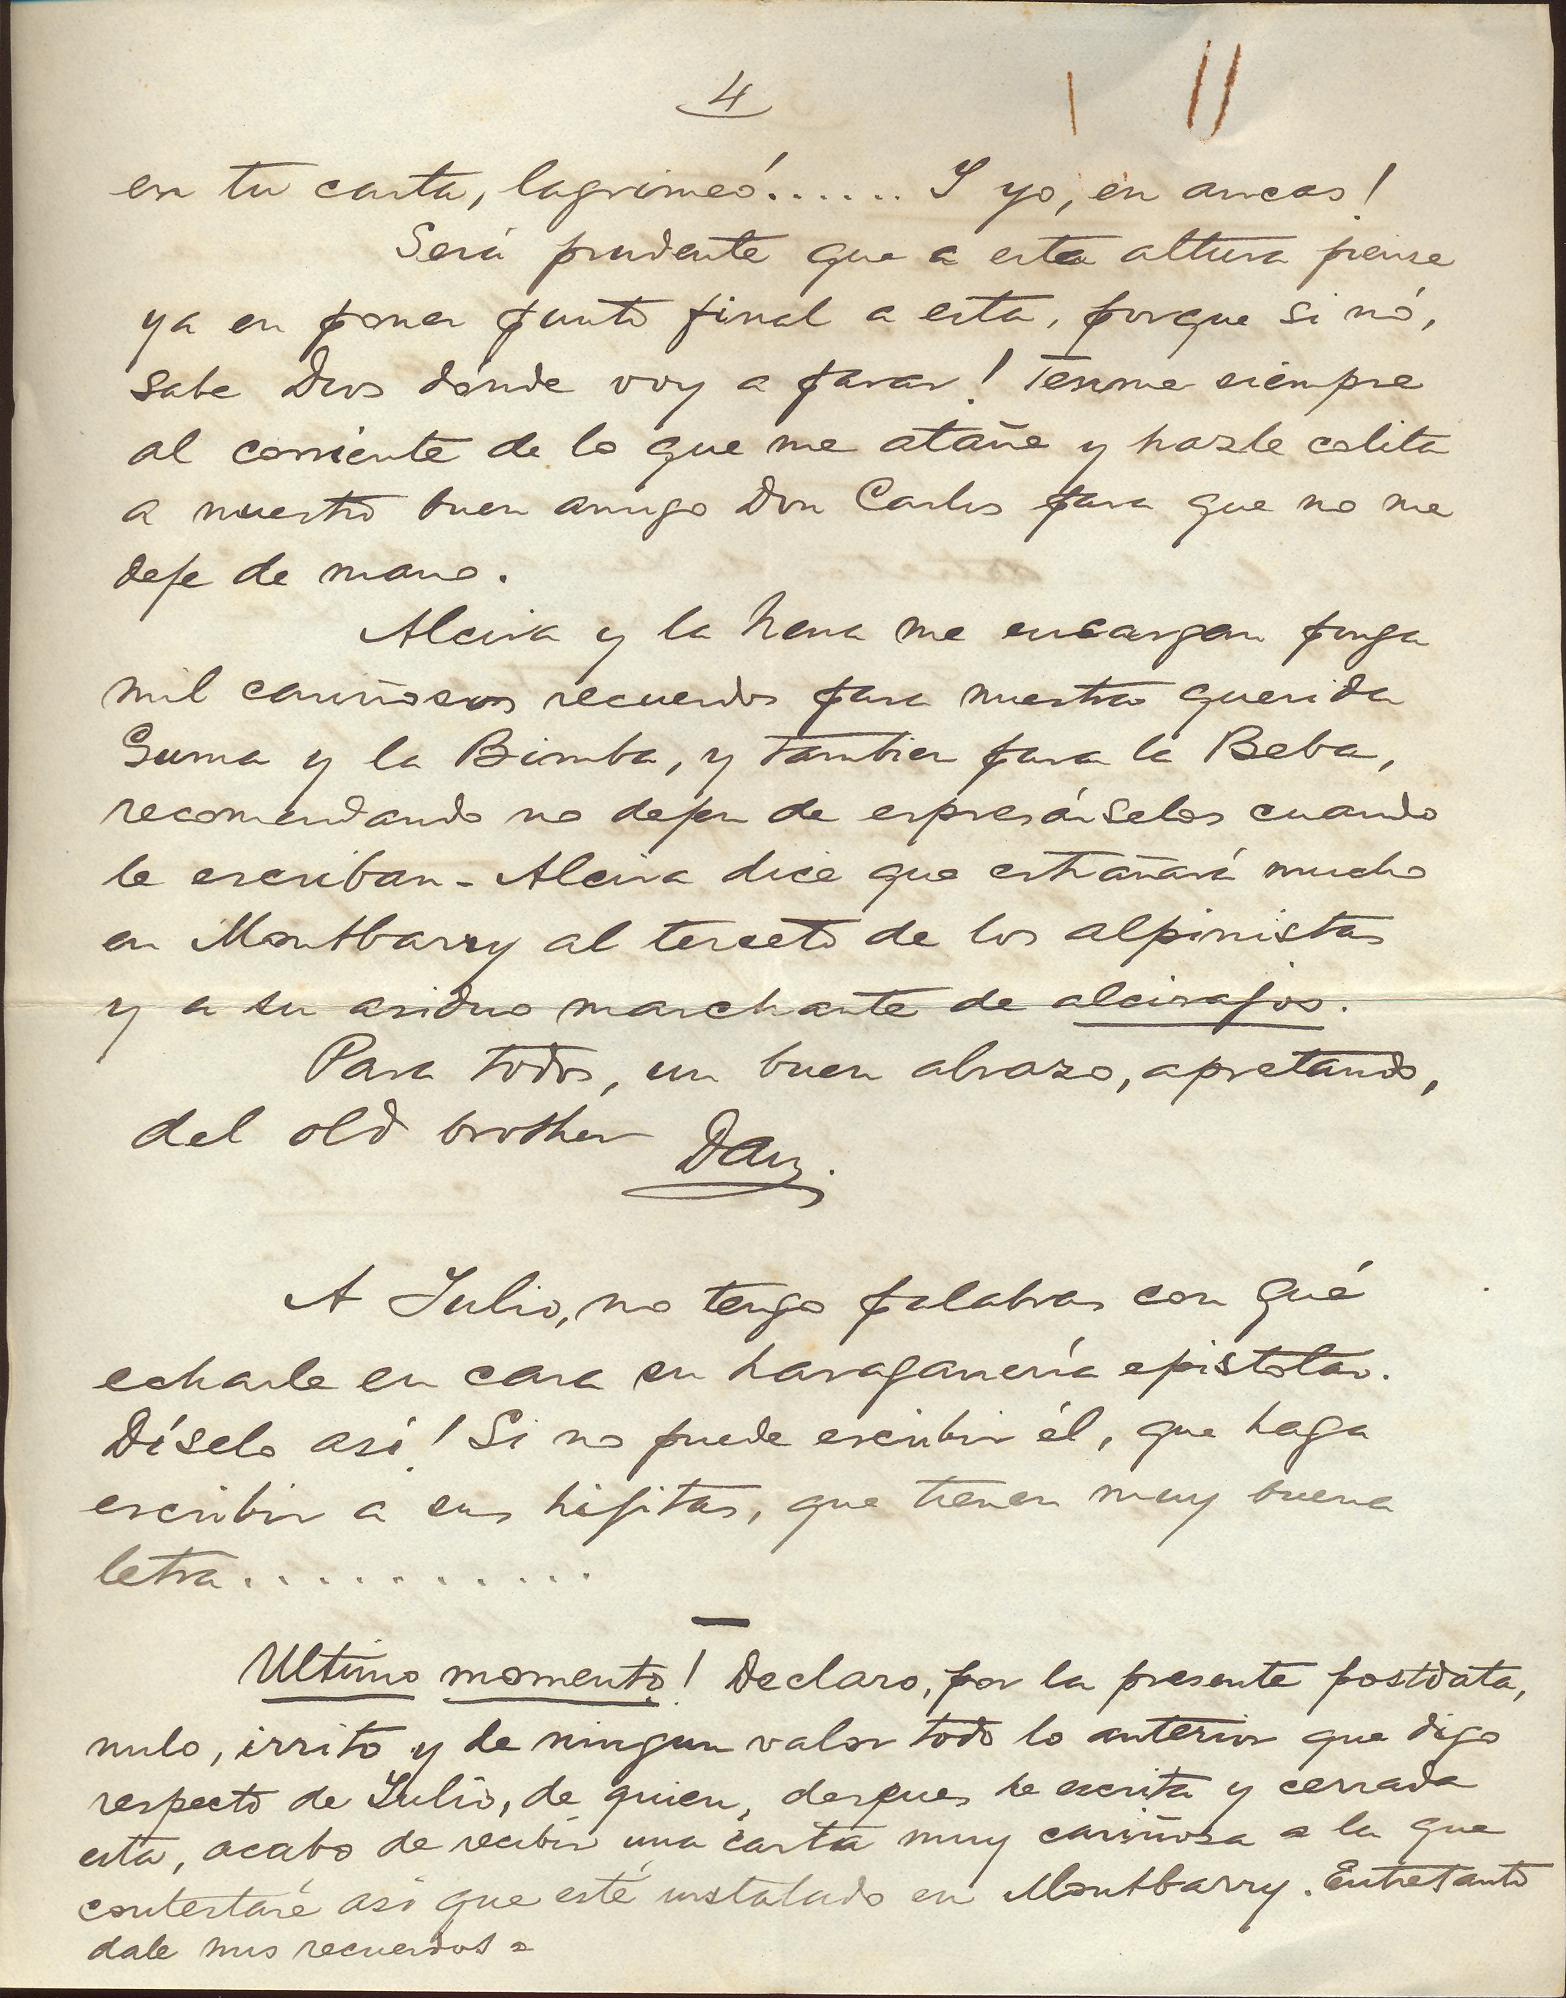 4
en tu carta, lagrimeó....... Y yo, en ancas!
Será prudente que a esta altura piense
ya en poner punto final a esta, porque si nó,
sabe Dios dónde voy a parar! Tenme siempre
al corriente de lo que me atañe y hazle colita
a nuestro buen amigo Don Carlos para que no me
deje de mano.
Alcira y la Nena me encargan ponga
mil cariñosos recuerdos para nuestra querida
Guma y la Bimba, y tambien para la Beba,
recomendando no dejen de espresárselos cuando
le escriban - Alcira dice que estrañará mucho
en Montbarry al terceto de los alpinistas
y a su asiduo marchante de alcirajos.
Para todos, un buen abrazo, apretando,
del old brother
A Julio, no tengo palabras con qué
echarle en cara su haraganería epistolar.
Díselo así! Si no puede escribir él, que haga
escribir a sus hijitas, que tienen muy buena
letra............
Ultimo momento! Declaro, por la presente postdata,
nulo, írrito y de ningun valor todo lo anterior que digo
respecto de Julio, de quien, despues de escrita y cerrada
esta, acabo de recibir una carta muy cariñosa a la que
contestaré así que esté instalado en Montbarry. Entretanto
dale mis recuerdos =